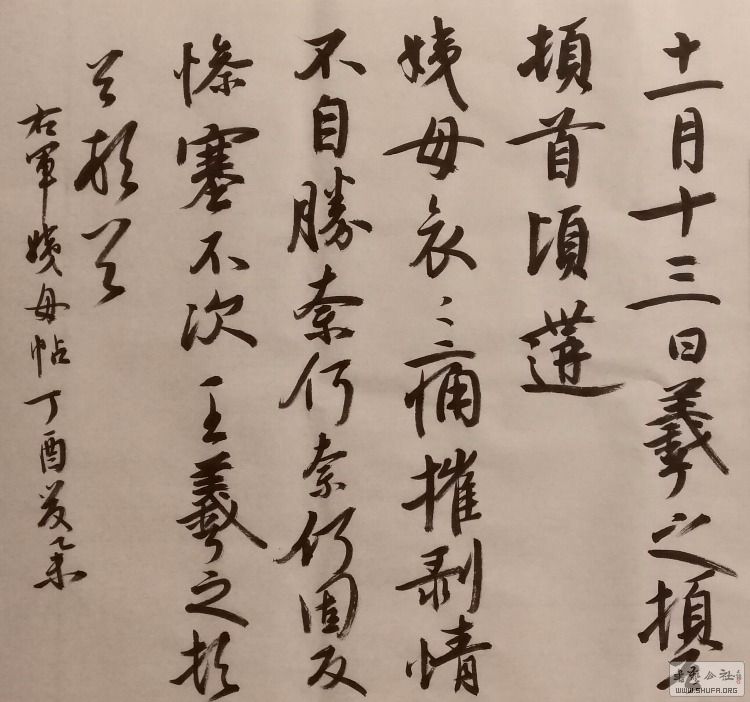 十一月十三日羲之頓首
頓首頃遘
姨母哀〻痛摧剥情
不自勝奈何奈何因反
慘塞不次王羲之頓
首頓首
右軍姨母帖丁酉
書法公社
WWW.SHUFA.ORG